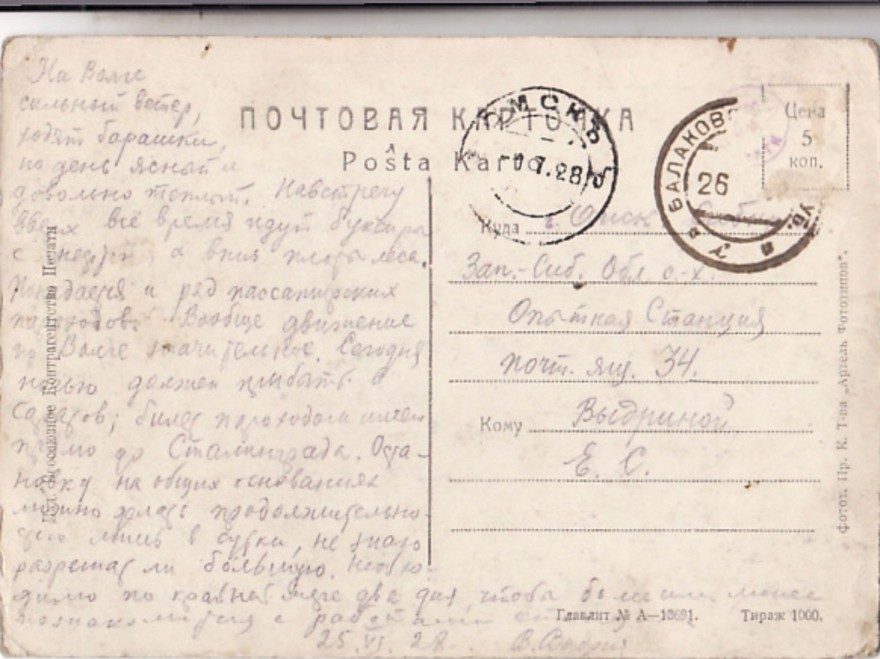 На Волге
сильный ветер,
ходят барашки,
но день ясный и
довольно теплый. Навстречу
вверх всё время идут буксиры
с нефтью а вниз плоты леса.
Попадается и ряд пассажирских
пароходов. Вообще движение
по Волге значительное. Сегодня
ночью должен прибыть в
Саратов; билет пароходом имею
прямо до Сталинграда. Оста-
новку на общих основаниях
можно делать продолжительно-
стью лишь в сутки, не знаю
разрешат ли большую. Необхо-
димо по крайней мере два дня, чтобы более или менее
познакомиться с работами
25.VI.28. В. Выдрин
ПОЧТОВАЯ КАРТОЧКА
Poŝta Karto
ОМСКЪ
7.28
БАЛАКОВО
26
Цена
5
коп.
Куда г. Омск Сибирь
Зап.-Сиб. Обл. с-х.
Опытная Станция
почт. ящ. 34.
Кому Выдриной
Е. С.
Главлит № А—13691. Тираж 1000.
Изд. Акционерное Контрагентство Печати
Фотот. Пр. К. Т-ва „Артель Фототипов".